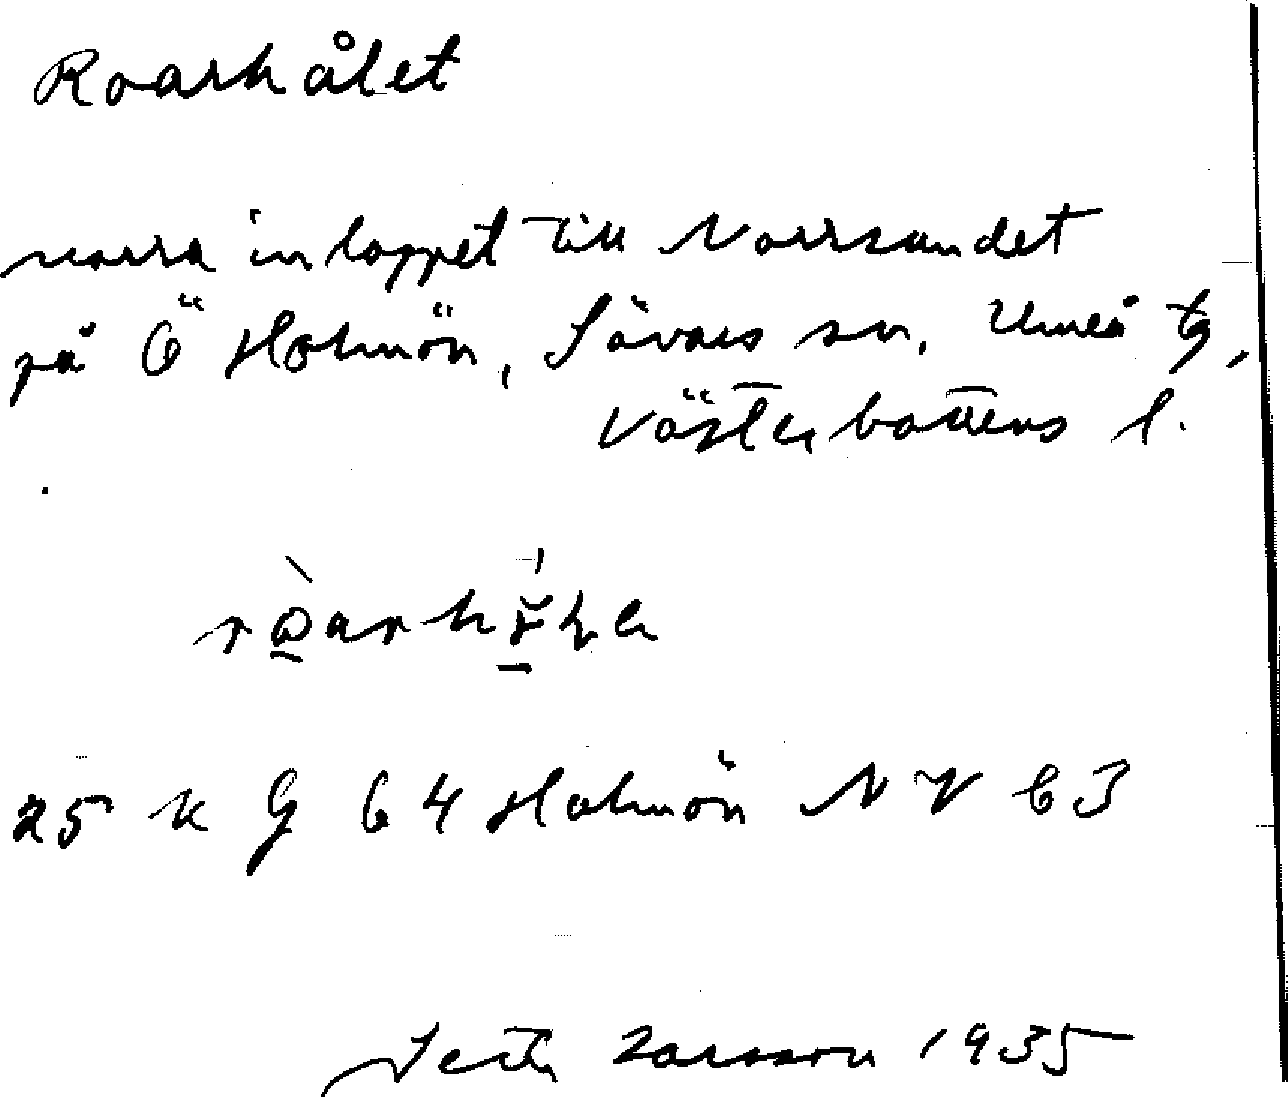 Roarhålet
norra inloppet till Norrsundet
på Ö Holmön, Sävars sn. Umeå tg,
Västerbottens l.
25 K G 64 Holmön NV 63
Seth Larsson 1935